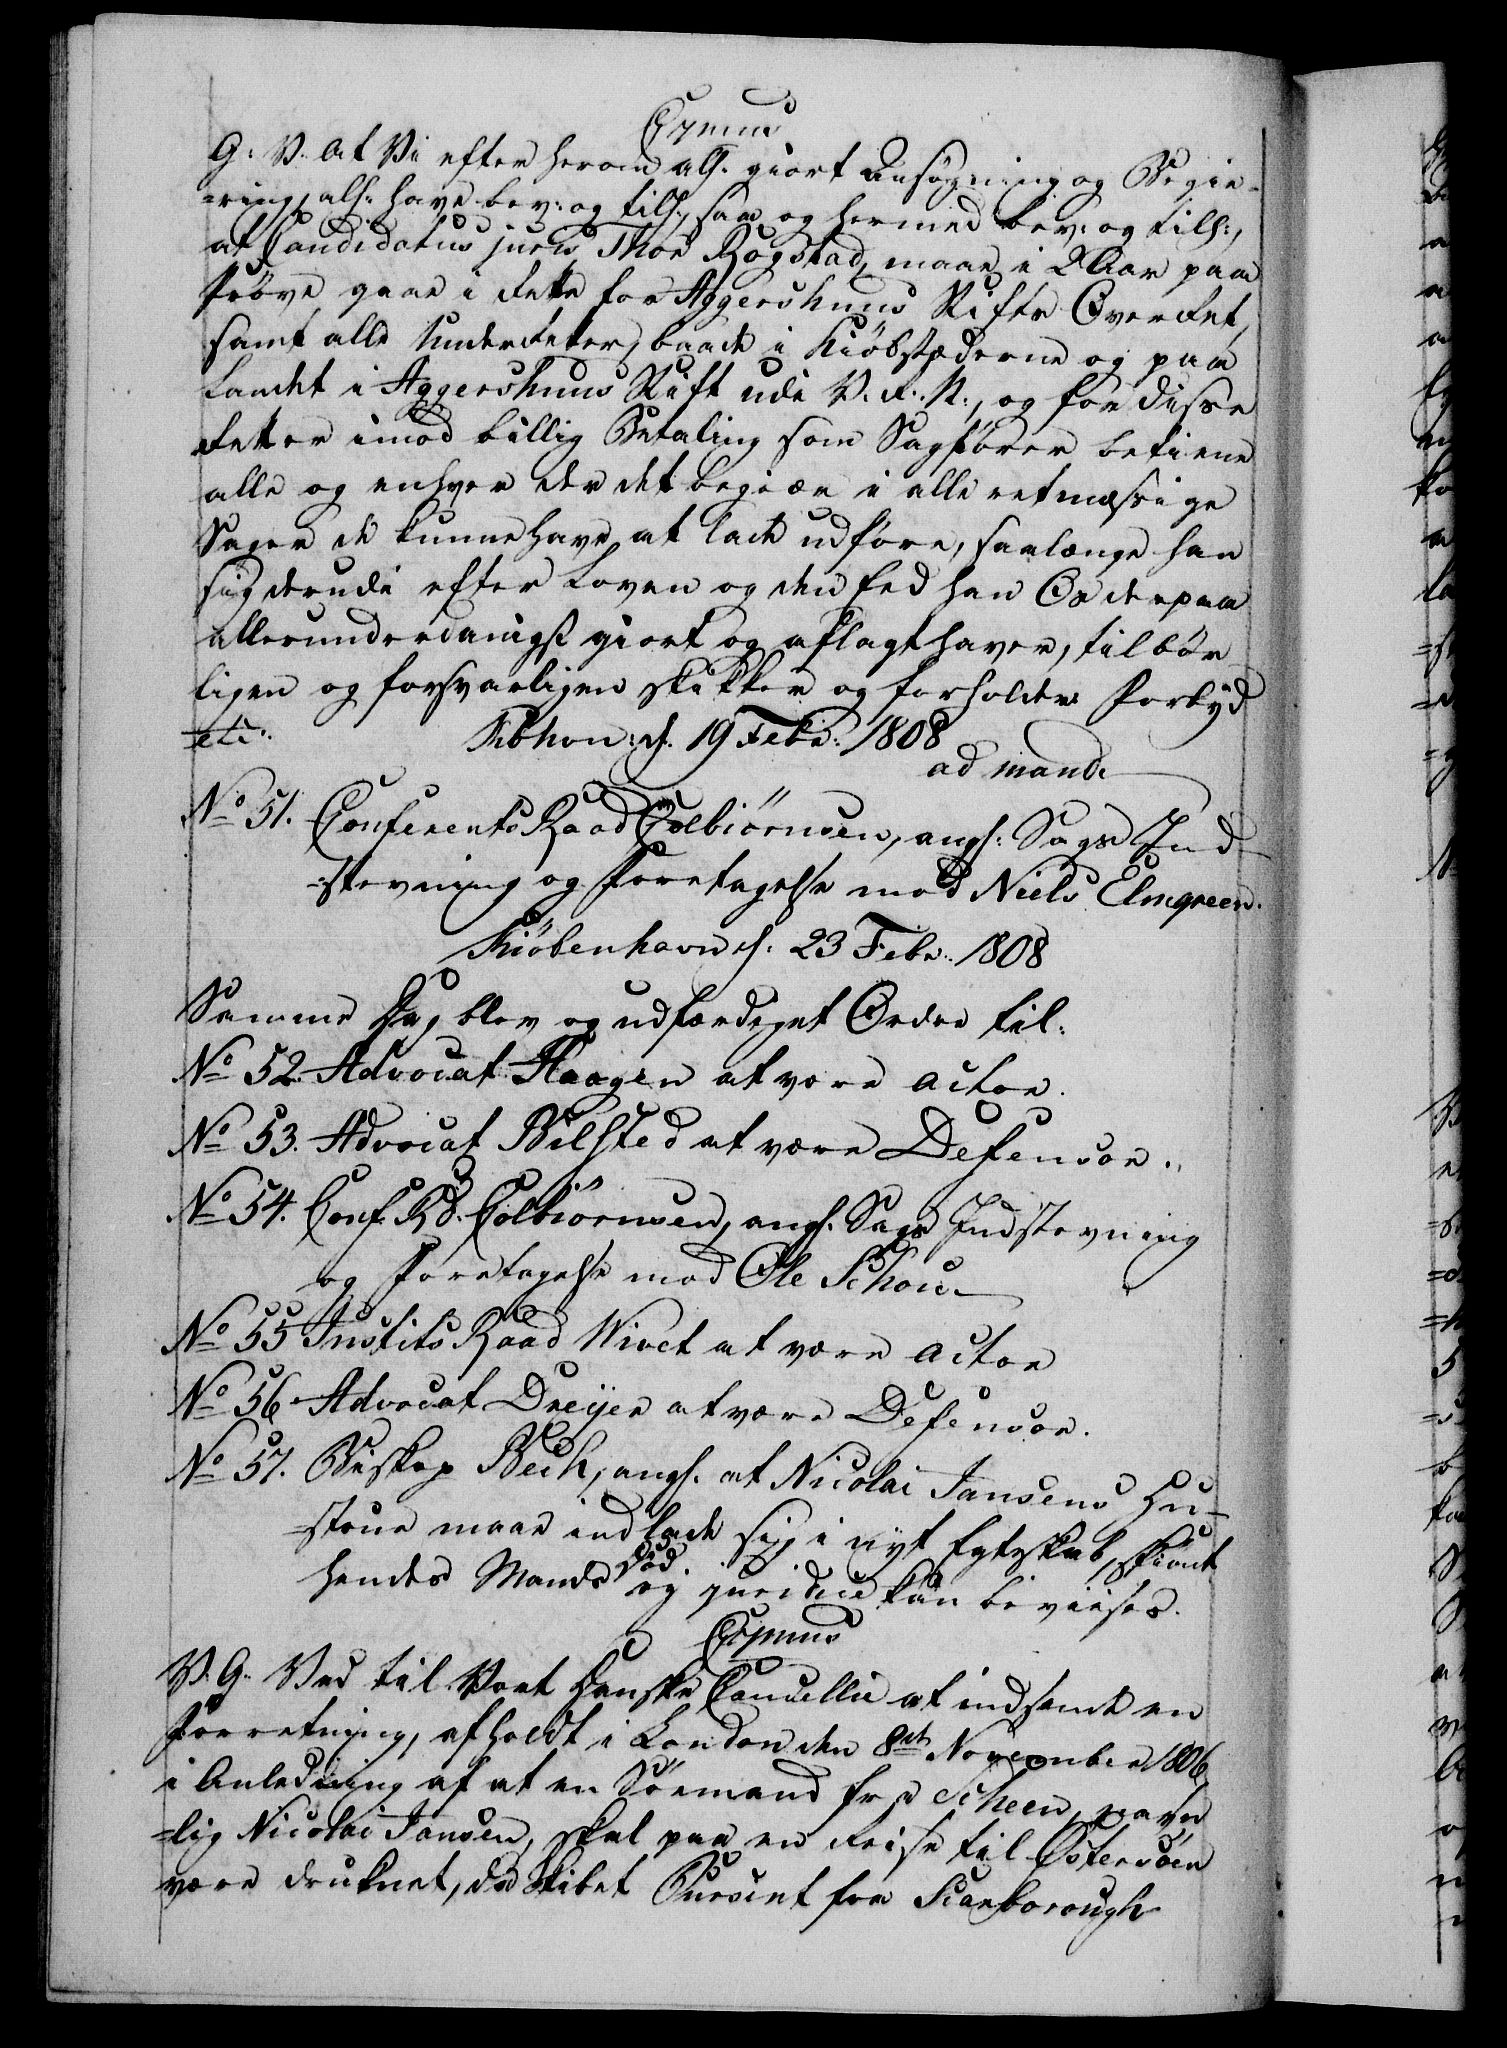 Cammer
G: V. At Vi efter herom alh. giort Ansögning og Begie-
=ring, alh: have bev: og tilh:, saa og hermed bev: og tilh:,
at Candidatus juris Thor Rogstad, maae i 2 Aar paa
Pröve gaae i Rette for Aggershuus Stifts Overret,
samt alle Underretter, baade i Kiöbstæderne og paa
Landet i Aggershuus Stift udi V. R. N:, og for disse
Retter imod billig Betaling som Sagförer betiene
alle og enhver der det begiær i alle retmæssige
Sager de kunne have at lade udföre, saalænge han
sig derudi efter Loven og den Eed han Os derpaa
allerunderdanigst giort og aflagt haver, tilbör
ligen og forsvarligen skikker og forholder Forbyd
=etc: Kbhvn: d. 19 Febr: 1808
ad mand:
No 51. Conferents Raad Colbiörnsen, angl: Sags Ind
=stevning og Foretagelse mod Niels Elmgreen.
Kiöbenhavn d: 23 Febr: 1808
Samme Dag blev og udfærdiget Ordre til:
No 52. Advocat Haagen at være Actor.
No 53. Advocat Bilsted at være Defensor.
No 54. Conf. Rd. Colbiörnsen, angl. Sags Indstevning
og Foretagelse mod Ole Schou
No 55 Justits Raad Wivet at være Actor
No 56 Advocat Dreijer at være Defensor.
No 57. Biskop Bech, angl. at Nicolai Jansens Hu-
=strue maae indlade sig i nyt Egteskab, skiönt
hendes Mands Död ej juridice kan bevises.
V. G. Ved til Vort Danske Cancellie at indsende en
Forretning, afholdt i London den 8de November 1806,
i Anledning af at en Söemand fra Scheen, navn
=lig Nicolai Jansen, skal paa en Reise til Östersöen
være druknet, da Skibet Pursint fra Scarborough